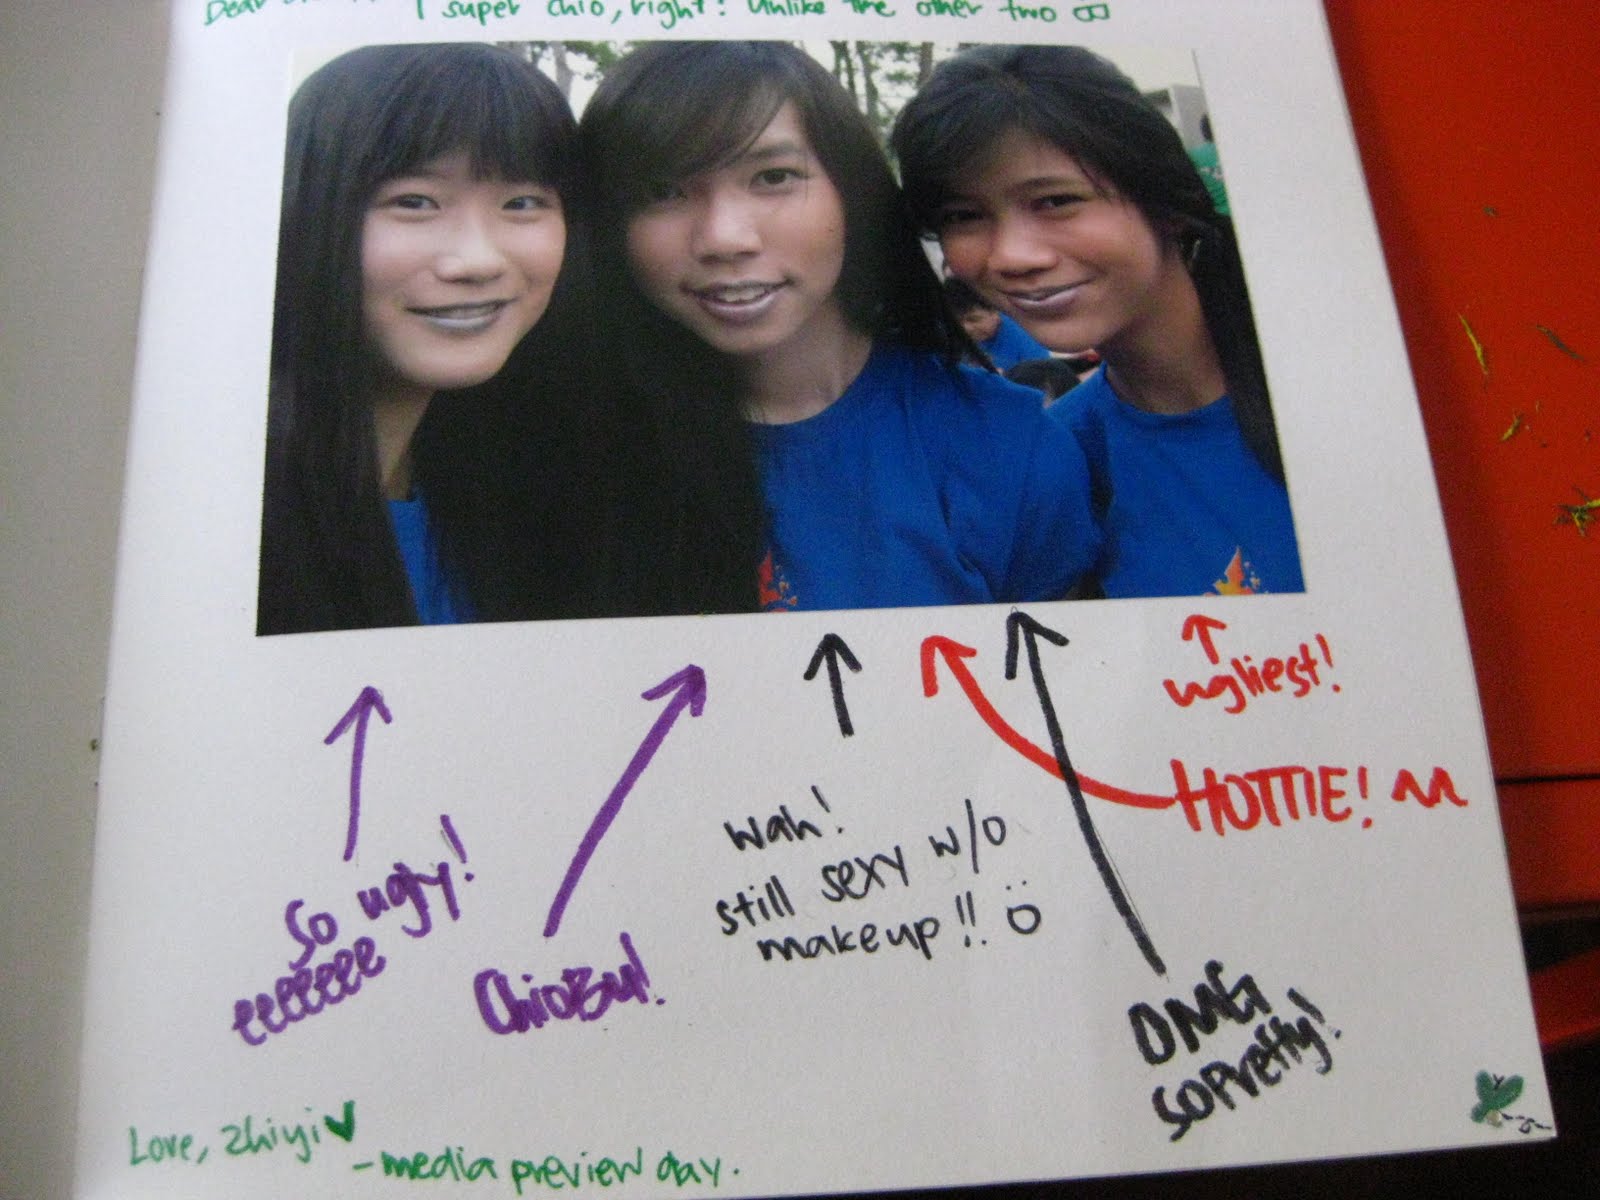 Dear
I super chio, right? Unlike the other two
ugliest!
HOTTIE!
So ugly!
eeeeeeee
ChioBu!
wah!
still sexy w/o
makeup!!
OMG
SO Pretty!
Love, Zhiyi
- media preview day.